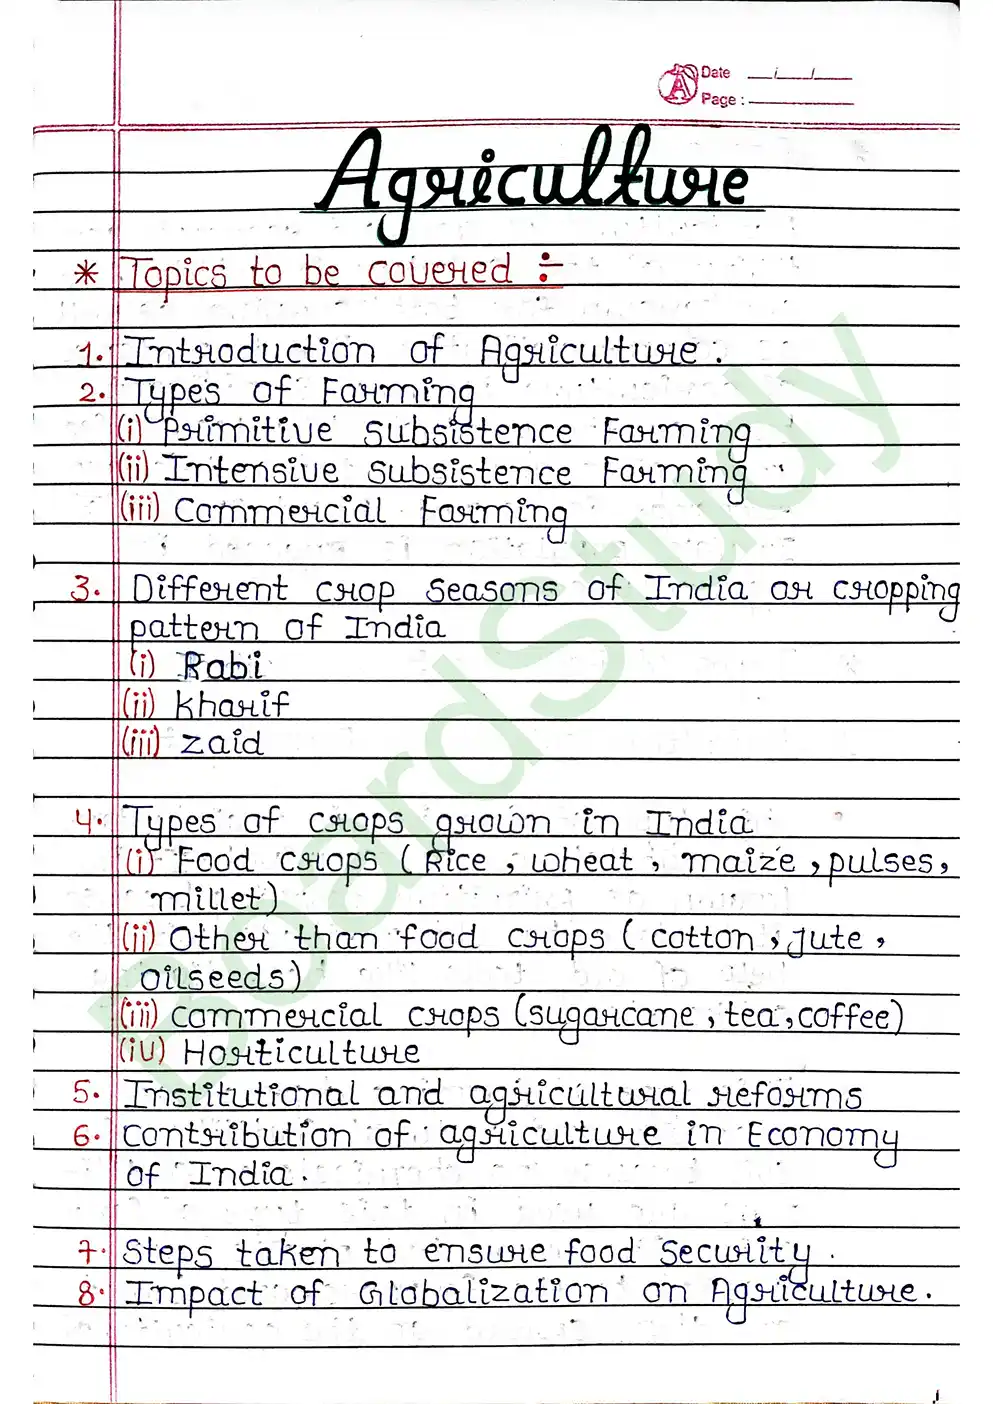 Date __/__/__
Page :
Agriculture
* Topics to be covered ÷
1. Introduction of Agriculture.
2. Types of Farming
(i) Primitive subsistence Farming
(ii) Intensive subsistence Farming
(iii) Commercial Farming
3. Different crop seasons of India or cropping
pattern of India
(i) Rabi
(ii) kharif
(iii) zaid
4. Types of crops grown in India
(i) Food crops (Rice, wheat, maize, pulses,
millet)
(ii) Other than food crops (cotton, jute,
oilseeds)
(iii) commercial crops (sugarcane, tea, coffee)
(iv) Horticulture
5. Institutional and agricultural reforms
6. contribution of agriculture in Economy
of India.
7. Steps taken to ensure food security.
8. Impact of Globalization on Agriculture.
BoardStudy